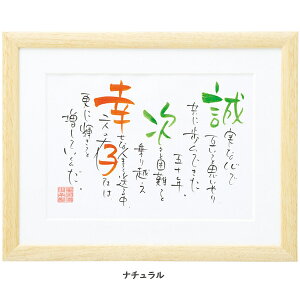 誠実な心で
互いに思いやり
共に歩んできた
五十年
次 困難を
乗り越え
幸せな人生を送る中
二人の 子は
更に輝きを
増していく
ナチュラル